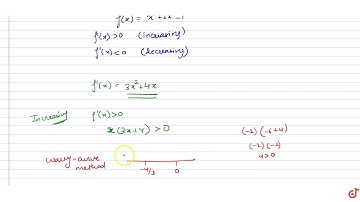 f(x) = x³+2x²-1
f'(x) > 0 (increasing)
f'(x) < 0 (decreasing)
f'(x) = 3x²+4x
Increasing f'(x) > 0
x(3x+4) > 0
(-2)(-6+4)
(-2)(-2)
4 > 0
wavy-curve
method
-4/3 0
doubtnut